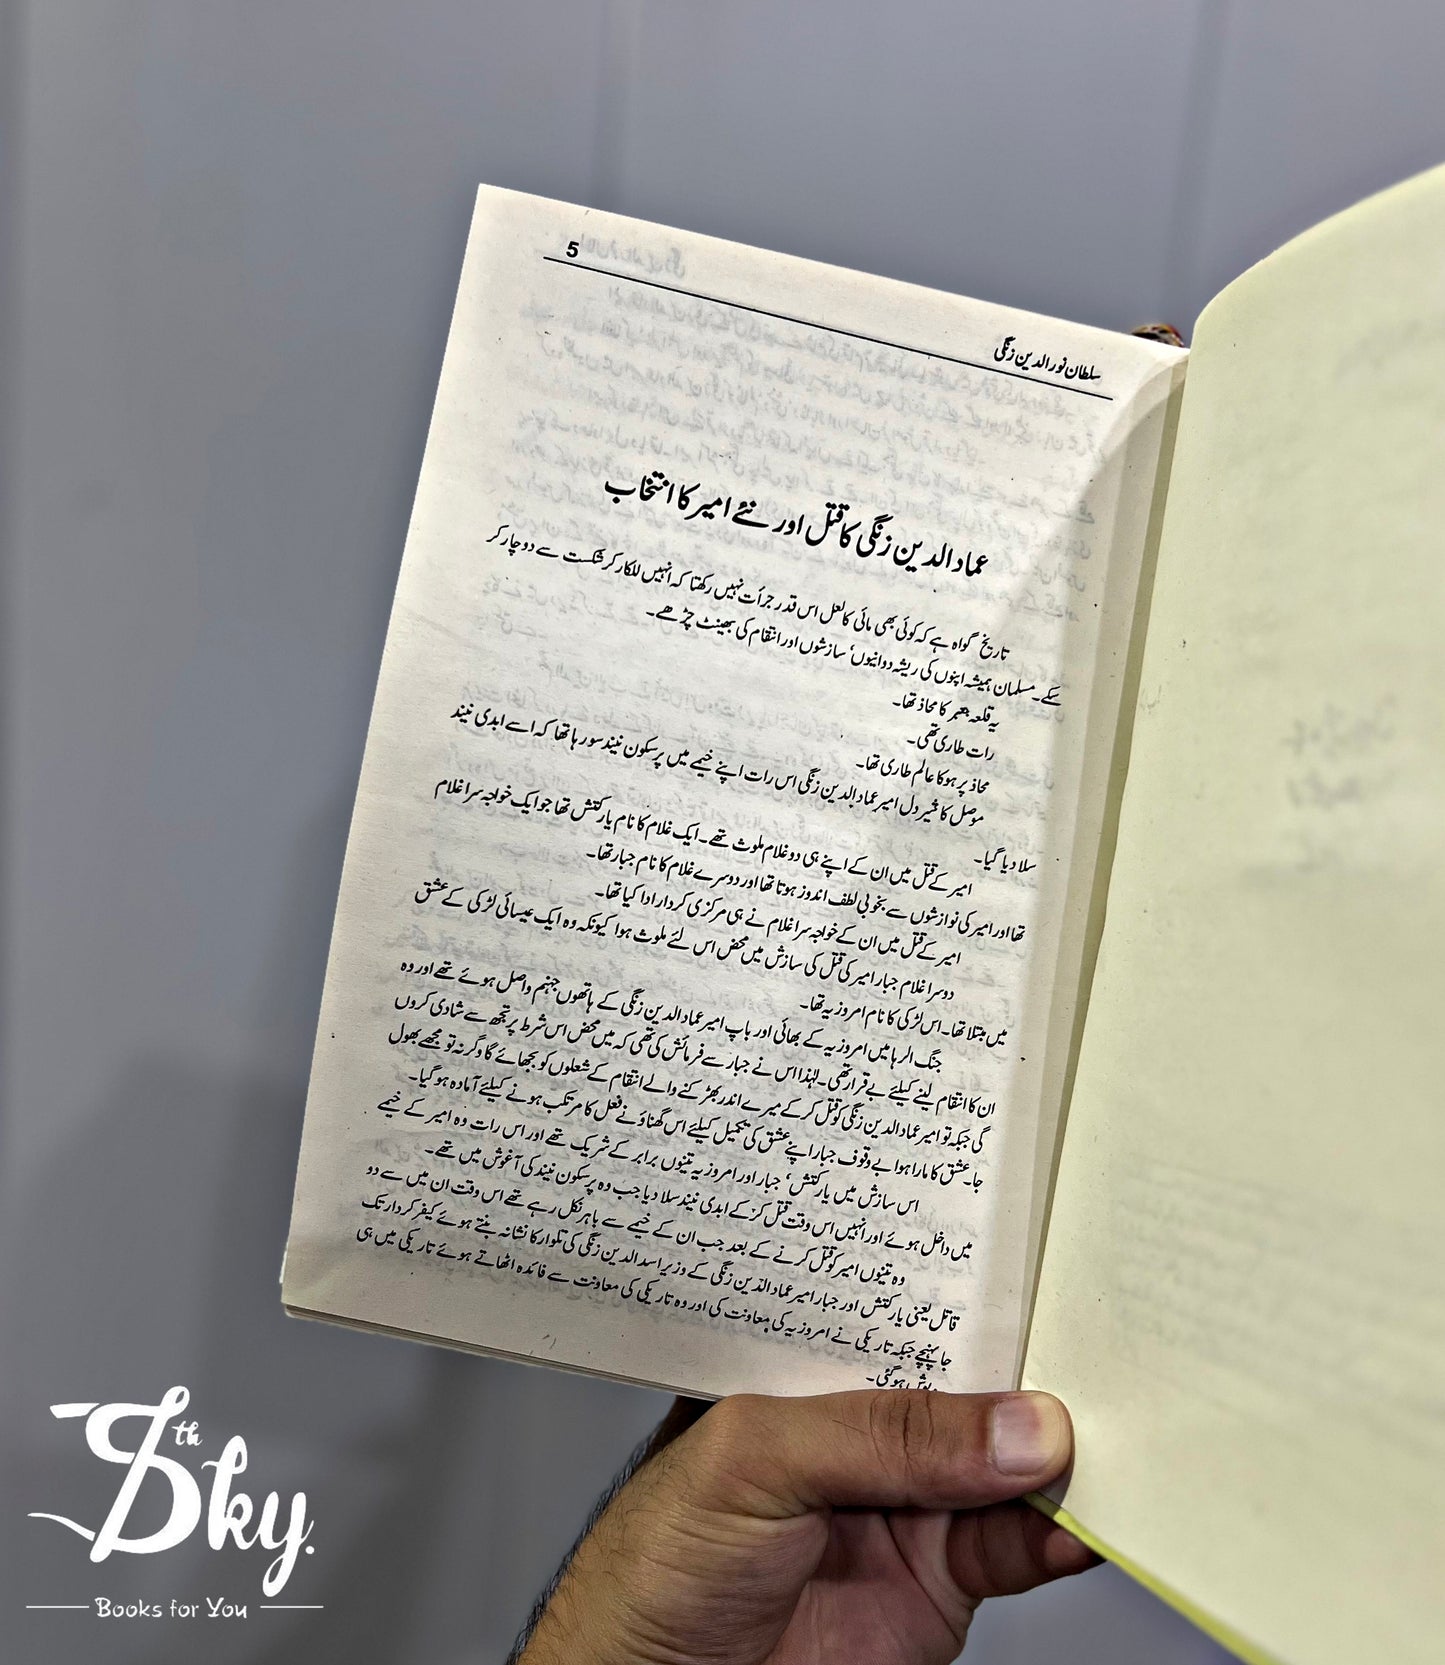 5
سلطان نور الدین زنگی
عماد الدین زنگی کا قتل اور نئے امیر کا انتخاب
تاریخ گواہ ہے کہ کوئی بھی مائی کا لعل اس قدر جرأت نہیں رکھتا کہ انہیں للکار کر شکست سے دوچار کر
سکے۔ مسلمان ہمیشہ اپنوں کی ریشہ دوانیوں، سازشوں اور انتقام کی بھینٹ چڑھے۔
یہ قلعہ جعبر کا محاذ تھا۔
رات طاری تھی۔
محاذ پر ہو کا عالم طاری تھا۔
موصل کا شیر دل امیر عماد الدین زنگی اس رات اپنے خیمے میں پرسکون نیند سو رہا تھا کہ اسے ابدی نیند
سلا دیا گیا۔
امیر کے قتل میں ان کے اپنے ہی دو غلام ملوث تھے۔ ایک غلام کا نام یارکتش تھا جو ایک خواجہ سرا غلام
تھا اور امیر کی نوازشوں سے بخوبی لطف اندوز ہوتا تھا اور دوسرے غلام کا نام جبار تھا۔
امیر کے قتل میں ان کے خواجہ سرا غلام نے ہی مرکزی کردار ادا کیا تھا۔
دوسرا غلام جبار امیر کی قتل کی سازش میں محض اس لئے ملوث ہوا کیونکہ وہ ایک عیسائی لڑکی کے عشق
میں مبتلا تھا۔ اس لڑکی کا نام امروزیہ تھا۔
جنگ الرہا میں امروزیہ کے بھائی اور باپ امیر عماد الدین زنگی کے ہاتھوں جہنم واصل ہوئے تھے اور وہ
ان کا انتقام لینے کیلئے بے قرار تھی۔ لہٰذا اس نے جبار سے فرمائش کی تھی کہ میں محض اس شرط پر تجھ سے شادی کروں
گی جبکہ تو امیر عماد الدین زنگی کو قتل کر کے میرے اندر بھڑکنے والے انتقام کے شعلوں کو بجھائے گا وگرنہ تو مجھے بھول
جا۔ عشق کا مارا ہوا بے وقوف جبار اپنے عشق کی تکمیل کیلئے اس گھناؤنے فعل کا مرتکب ہونے کیلئے آمادہ ہو گیا۔
اس سازش میں یارکتش، جبار اور امروزیہ تینوں برابر کے شریک تھے اور اس رات وہ امیر کے خیمے
میں داخل ہوئے اور انہیں اس وقت قتل کر کے ابدی نیند سلا دیا جب وہ پرسکون نیند کی آغوش میں تھے۔
وہ تینوں امیر کو قتل کرنے کے بعد جب ان کے خیمے سے باہر نکل رہے تھے اس وقت ان میں سے دو
قاتل یعنی یارکتش اور جبار امیر عماد الدین زنگی کے وزیر اسد الدین زنگی کی تلوار کا نشانہ بنتے ہوئے کیفر کردار تک
جا پہنچے جبکہ تاریکی نے امروزیہ کی معاونت کی اور وہ تاریکی کی معاونت سے فائدہ اٹھاتے ہوئے تاریکی میں ہی
ہو گئی۔
7th Sky.
Books for You